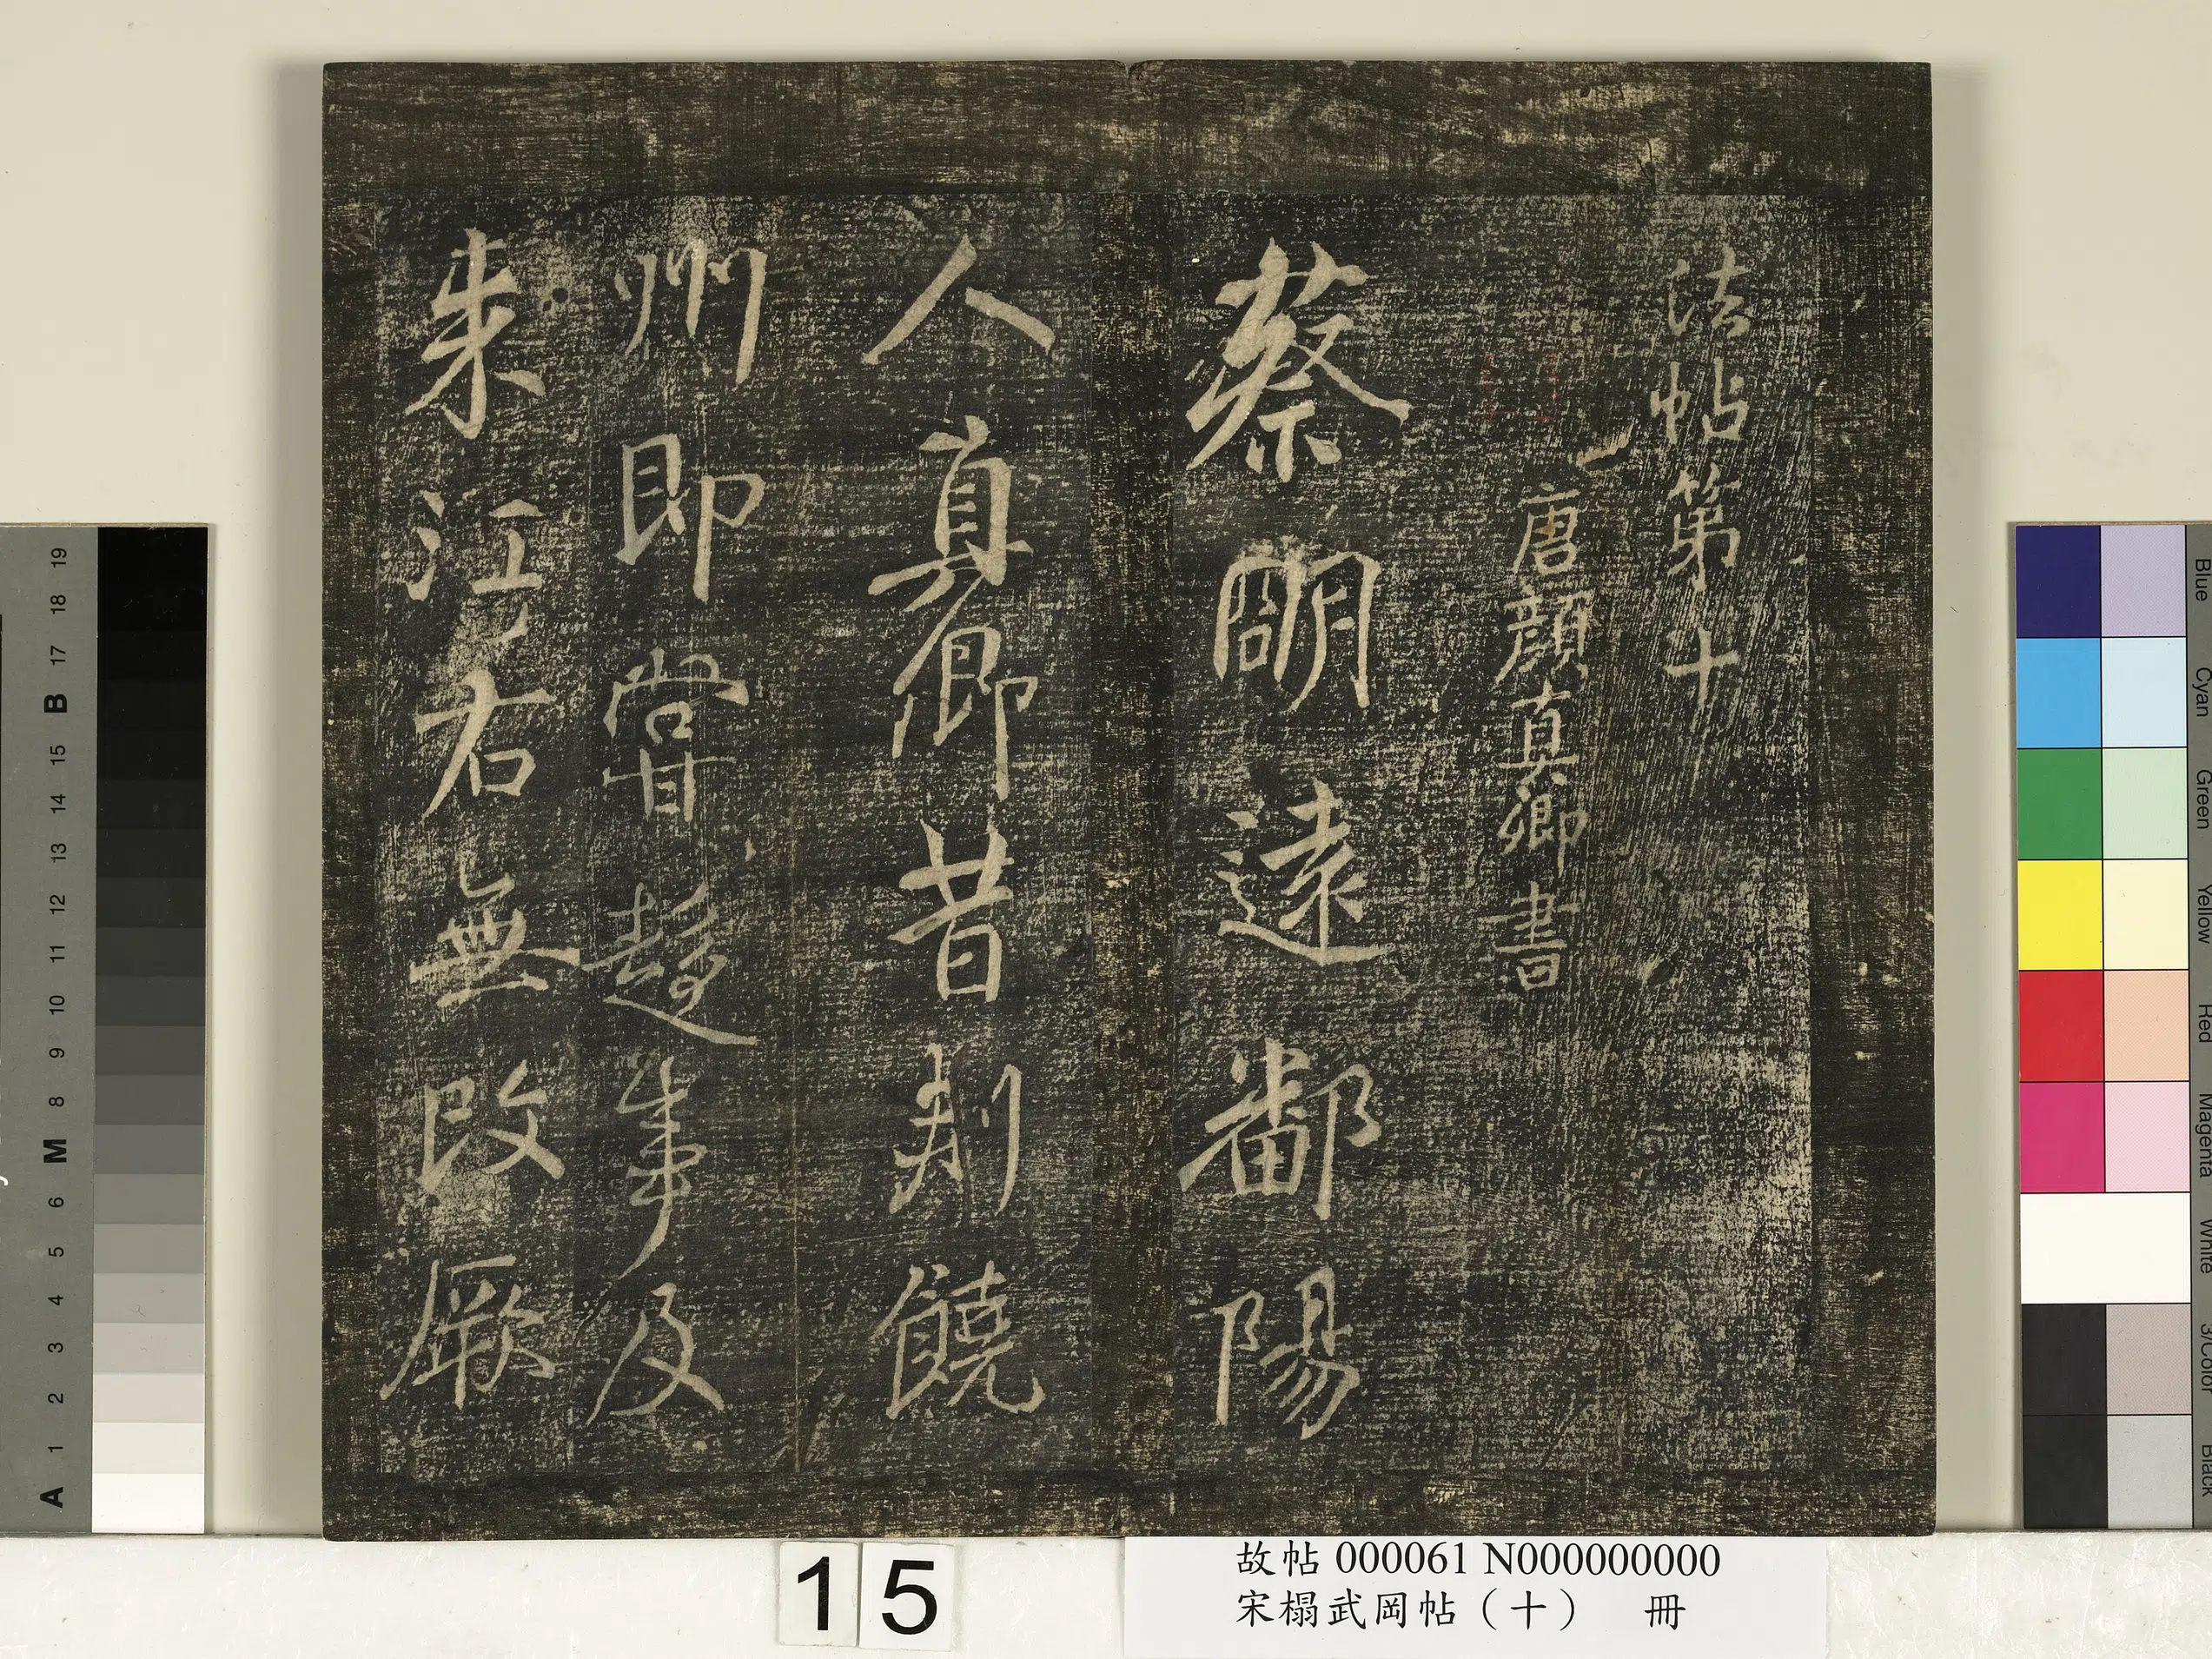 法帖第十
唐顏真卿書
蔡明遠鄱陽
人真卿昔刺饒
州即嘗趨事及
来江右無改厥
15
故帖 000061 N000000000
宋榻武岡帖（十） 冊
19
18
17
B
15
14
13
12
11
10
9
8
M
6
5
4
3
2
1
A
Blue
Cyan
Green
Yellow
Red
Magenta
White
3/Color
Black